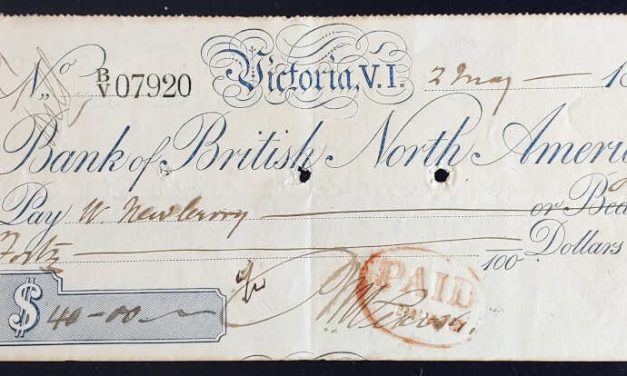 No. B/V 07920 Victoria, V.I. 2 May 18
Bank of British North Ameri
Pay W. Newberry or Bea
Forty /100 Dollars
$ 40-00
PAID